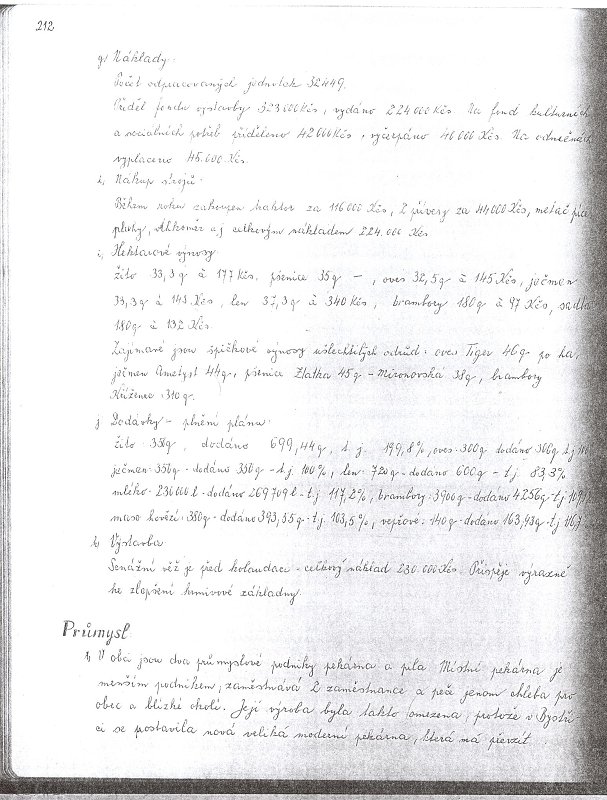 212
g, Náklady.
Počet odpracovaných jednotek 32449.
Příděl fondu výstavby 323 000 Kčs, vydáno 224 000 Kčs. Na fond kulturních
a sociálních potřeb přiděleno 42 000 Kčs, vyčerpáno 40 000 Kčs. Na odměnách
vyplaceno 45.000 Kčs.
Nákup strojů.
Během roku zakoupen traktor za 116 000 Kčs, 2 přívěsy za 44 000 Kčs, metač píce
pluhy, aj celkovým nákladem 224.000 Kčs
i, Hektarové výnosy
žito 33,3 q à 177 Kčs. pšenice 35 q - , oves 32,5 q à 145 Kčs, ječmen
33,3 q à 143 Kčs, len 37,3 q à 340 Kčs, brambory 180 q à 97 Kčs,
180 q à 132 Kčs
Zajímavé jsou špičkové výnosy ušlechtilých odrůd. oves Tiger 46 q po ha,
ječmen Ametyst 44 q, pšenice Zlatka 45 q - Mironovská 38 q, brambory
Kříženec 310 q.
j Dodávky - plnění plánu.
žito 350 q, dodáno 699,44 q, t. j. 199,8 %, oves 300 q dodáno 306 q t j
ječmen 350 q - dodáno 350 q - t j. 100 %, len 720 q - dodáno 600 q - t j. 83,3 %
mléko 230 000 l - dodáno 269 709 l - t j. 117,2 %, brambory 3900 q - dodáno 4256 q - t j 109,
maso hovězí 380 q - dodáno 393,35 q - t j 103,5 %, vepřové 140 q - dodáno 163,43 q t j 116,7
k, Výstavba
Senážní věž je před kolaudací - celkový náklad 230.000 Kčs. Přispěje výrazně
ke zlepšení krmivové základny.
Průmysl
V obci jsou dva průmyslové podniky pekárna a pila Místní pekárna je
menším podnikem, zaměstnává 2 zaměstnance a peče jenom chleba pro
obec a blízké okolí. Její výroba byla takto omezena, protože v Bystři
ci se postavila nová veliká moderní pekárna, která má převzít